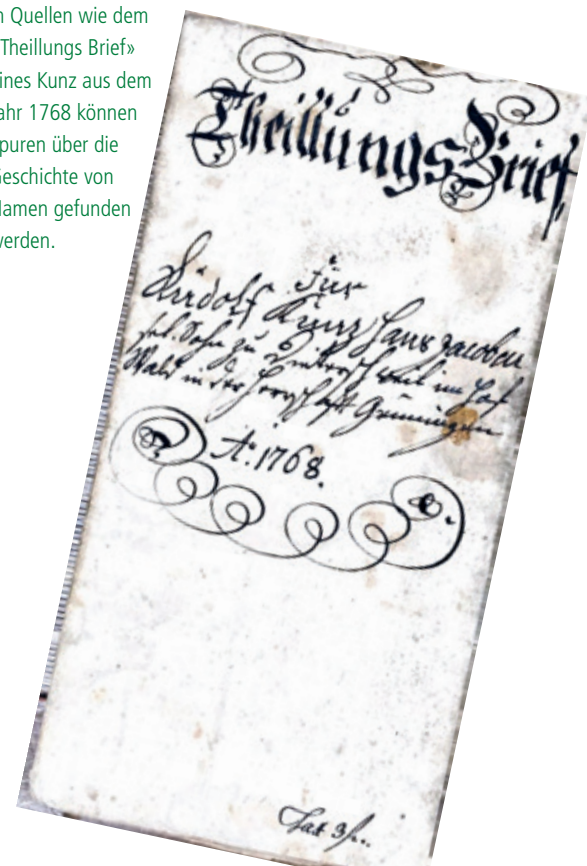 n Quellen wie dem
Theillungs Brief»
ines Kunz aus dem
ahr 1768 können
puren über die
Geschichte von
Namen gefunden
werden.
Theillungs Brief,
Für
Rudolf Kunz Hans Jacoben
sel. Sohn zu im Hof
Wald in der Herrschafft Grüningen
A: 1768.